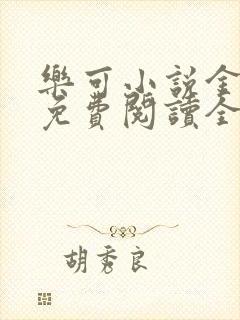 樂可小說全
免費閱讀全
胡秀良